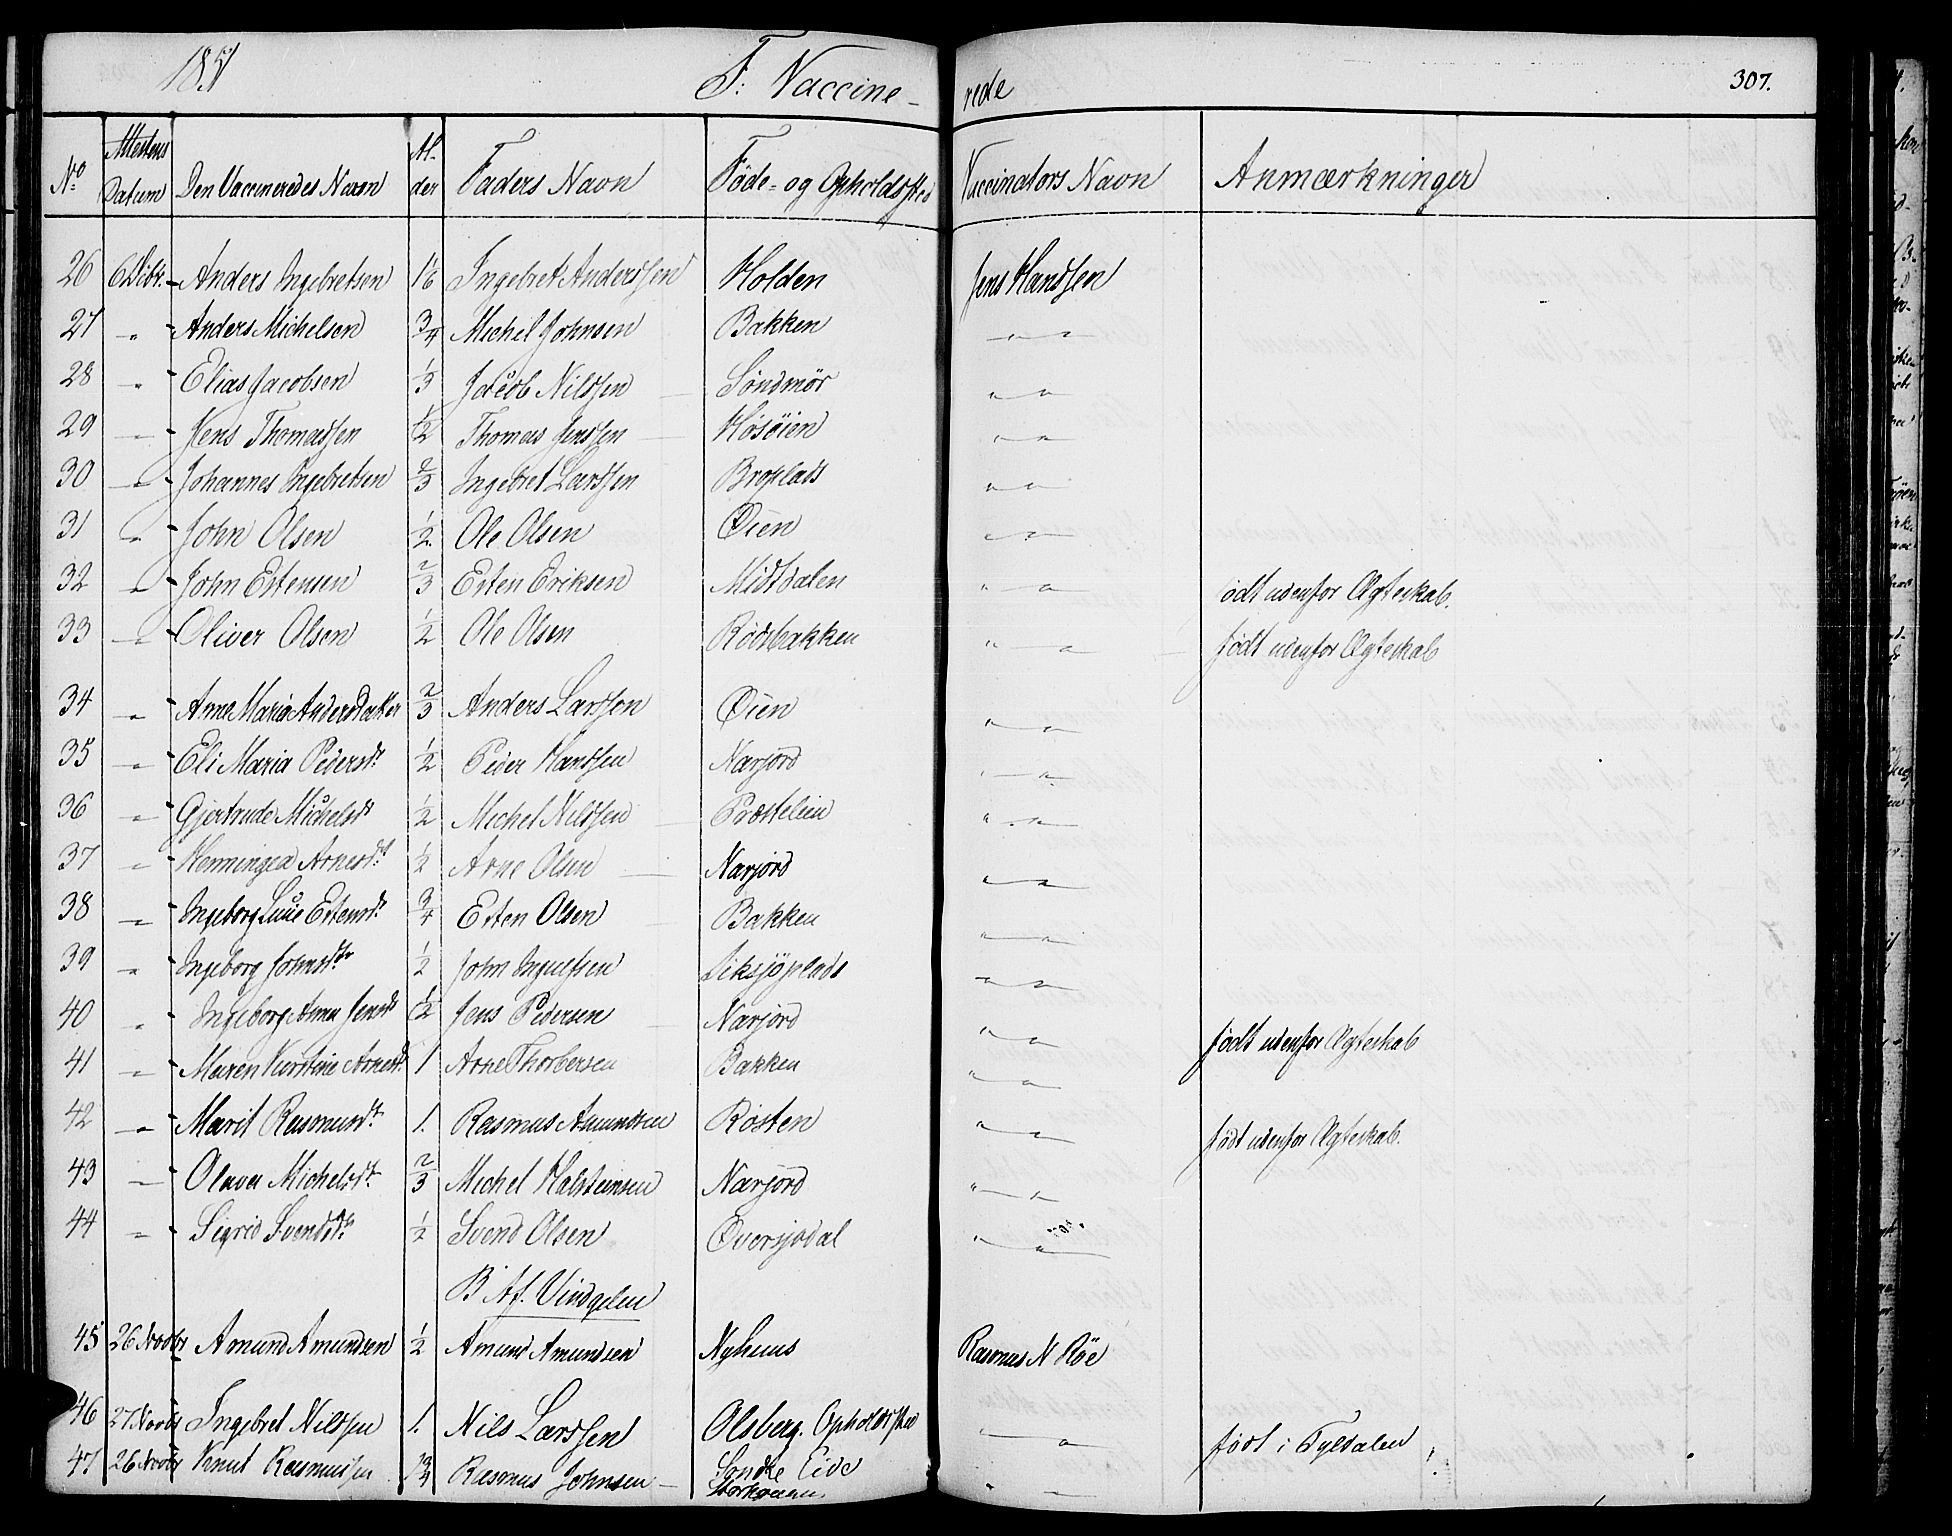 1851 F: Vaccine- rede 307.
No Attestens Datum Den Vaccineredes Navn Al-der Faders Navn Føde- og Opholdssted Vaccinators Navn Anmærkninger
26 6 Anders Ingebretsen Ingebret Anderssen Holden Jens Hanssen
27 " Anders Michelsen 3/4 Michel Johnsen Bakken " "
28 " Elias Jacobsen 1/3 Jacob Nilssen Søndmør " "
29 " Jens Thomassen 1/2 Thomas Jenssen Høsøien " "
30 " Johannes Ingebretsen 2/3 Ingebret Larssen Broplads " "
31 " John Olsen 1/2 Ole Olsen Øien " "
32 " John Estensen 2/3 Esten Eriksen Midtdalen " " født udenfor Ægteskab.
33 " Oliver Olsen 1/2 Ole Olsen Rødsbakken " " født udenfor Ægteskab
34 " Anne Maria Andersdatter 2/3 Anders Larssen Øien " "
35 " Eli Maria Pedersdt. 1/2 Peder Hanssen Narjord " "
36 " Gjertrude Michelsdt 1/2 Michel Nilssen Præstelien " "
37 " Henningea Arnesdt. 1/2 Arne Olsen Narjord " "
38 " Ingeborg Lucie Estensdt. 3/4 Esten Olsen Bakken " "
39 " Ingeborg Johnsdtr 1/2 John Ingulfsen Siksjøplads " "
40 " Ingeborg Anna Jensdt 1/2 Jens Pedersen Narjord " " født udenfor Ægteskab
41 " Maren Kirstine Arnesd. 1 Arne Thorbersen Bakken " "
42 " Marit Rasmusdt. 1. Rasmus Amundsen Røsten " " født udenfor Ægteskab.
43 " Olava Michelsdt. 2/3 Michel Halsteinsen Narjord " "
44 " Sigrid Svendsdtr 1/2 Svend Olsen Oversjødal " "
B Af. Vindgelen
45 26 Novbr Amund Amundsen 1/2 Amund Amundsen Nyhuus Rasmus N Røe
46 27 Novbr Ingebret Nilssen 1. Nils Larssen Olsberg. Opholdssted " " født i Tyldalen
47 26 Novbr Knut Rasmussen Rasmus Johnsen Eide " "